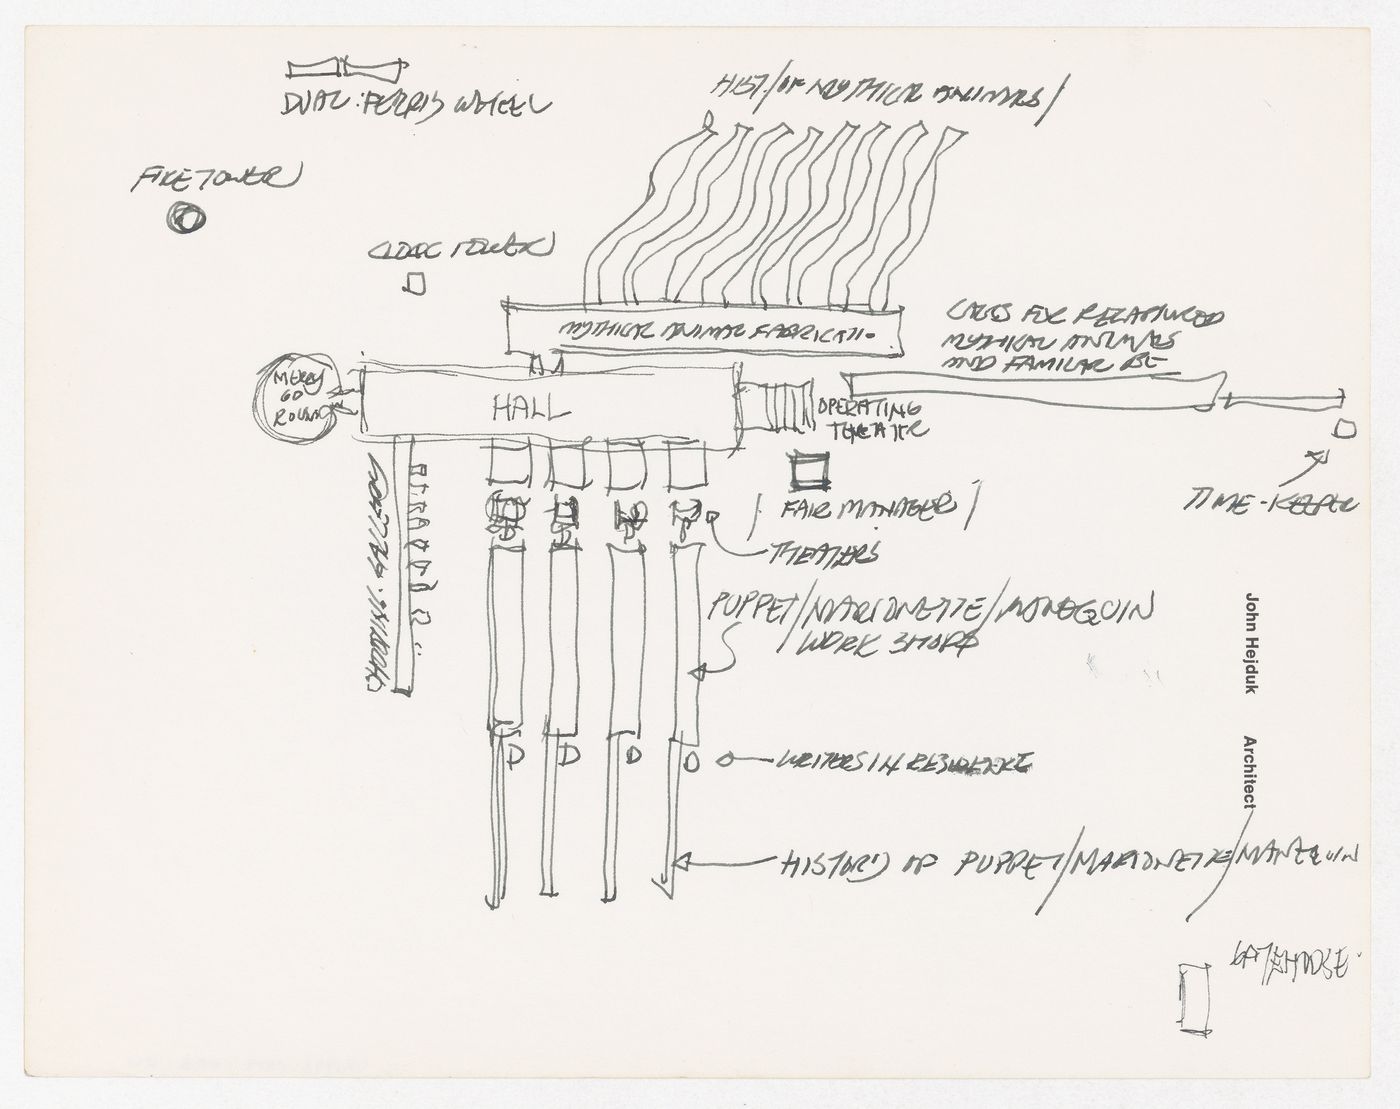 DUAL FERRIS WHEEL
HIST/OF MYTHICAL ANIMALS/
FIRE TOWER
CLOCK TOWER
MYTHICAL ANIMAL FABRICATIO
CAGES FOR RECAPTURED
MYTHICAL ANIMALS
AND FAMILIAR BE
MERRY
GO
ROUND
HALL
OPERATING
THEATER
TIME-KEEPER
/ FAIR MANAGER /
THEATERS
PUPPET/MARIONETTE/MANEQUIN
WORK SHOPS
John Hejduk Architect
WRITERS IN RESIDENCE
HISTORY OF PUPPET/MARIONETTE/MANEQUIN
GATEHOUSE